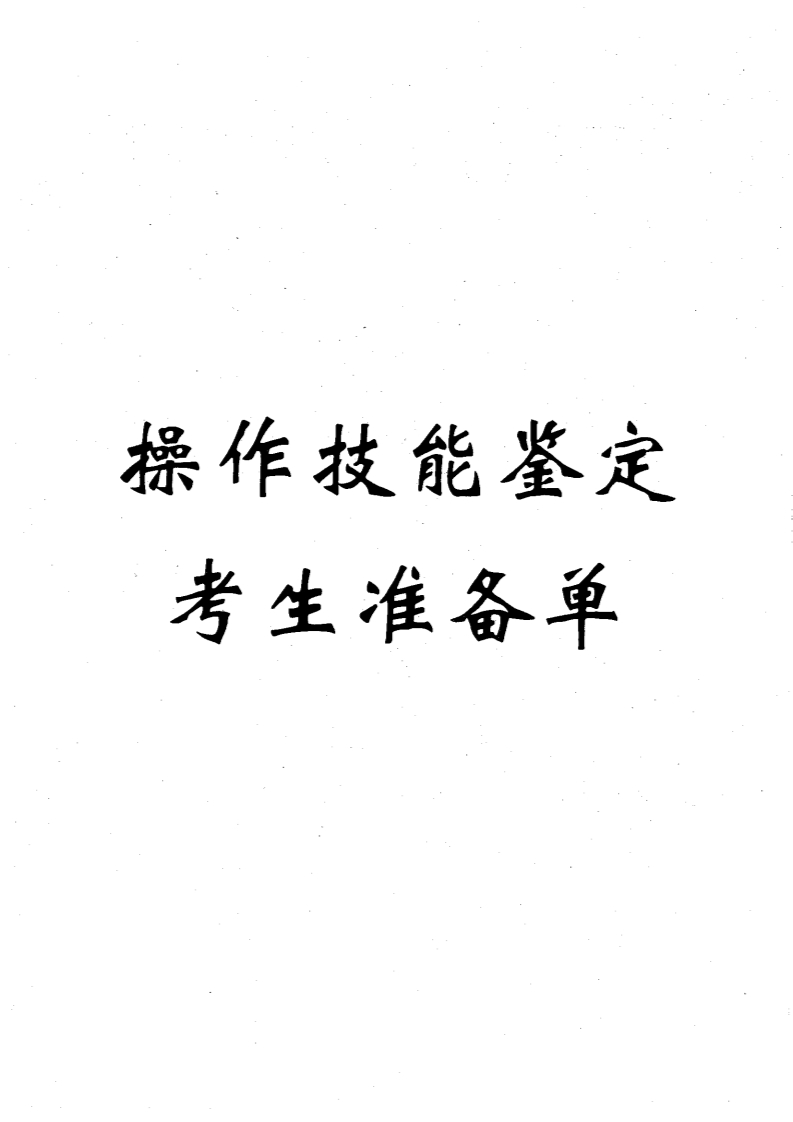 操作技能鉴定
考生准备单